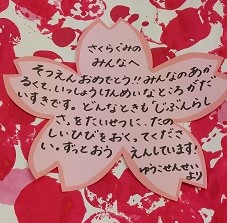 さくらぐみの
みんなへ
そつえんおめでとう!!みんなのあか
るくて、いっしょうけんめいなところがだ
いすきです。どんなときも「じぶんらし
さ」をたいせつに、たの
しいひびをおくってくださ
い。ずっとおうえんしています!
ゆうこせんせい
より